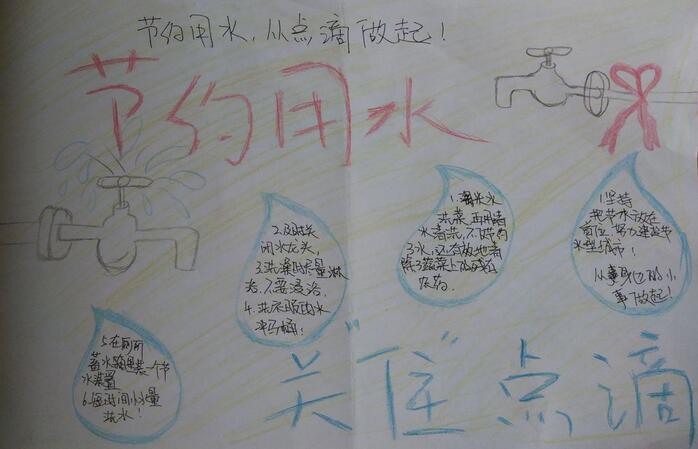 节约用水，从点滴做起！
节约用水
2.及时关
闭水龙头，
3.洗澡时尽量淋
浴，不要浸浴。
4.洗衣服的水
冲马桶！
1.淘米水
洗菜，再用清
水清洗，不仅节约
了水，还有效地清
除了蔬菜上的残存
农药。
1.坚持
把节水放在
首位，努力建设节
水型城市！
从事身边的小
事做起！
5.在厕所
蓄水箱里装一个节
水装置
洗水！
关"住"点滴